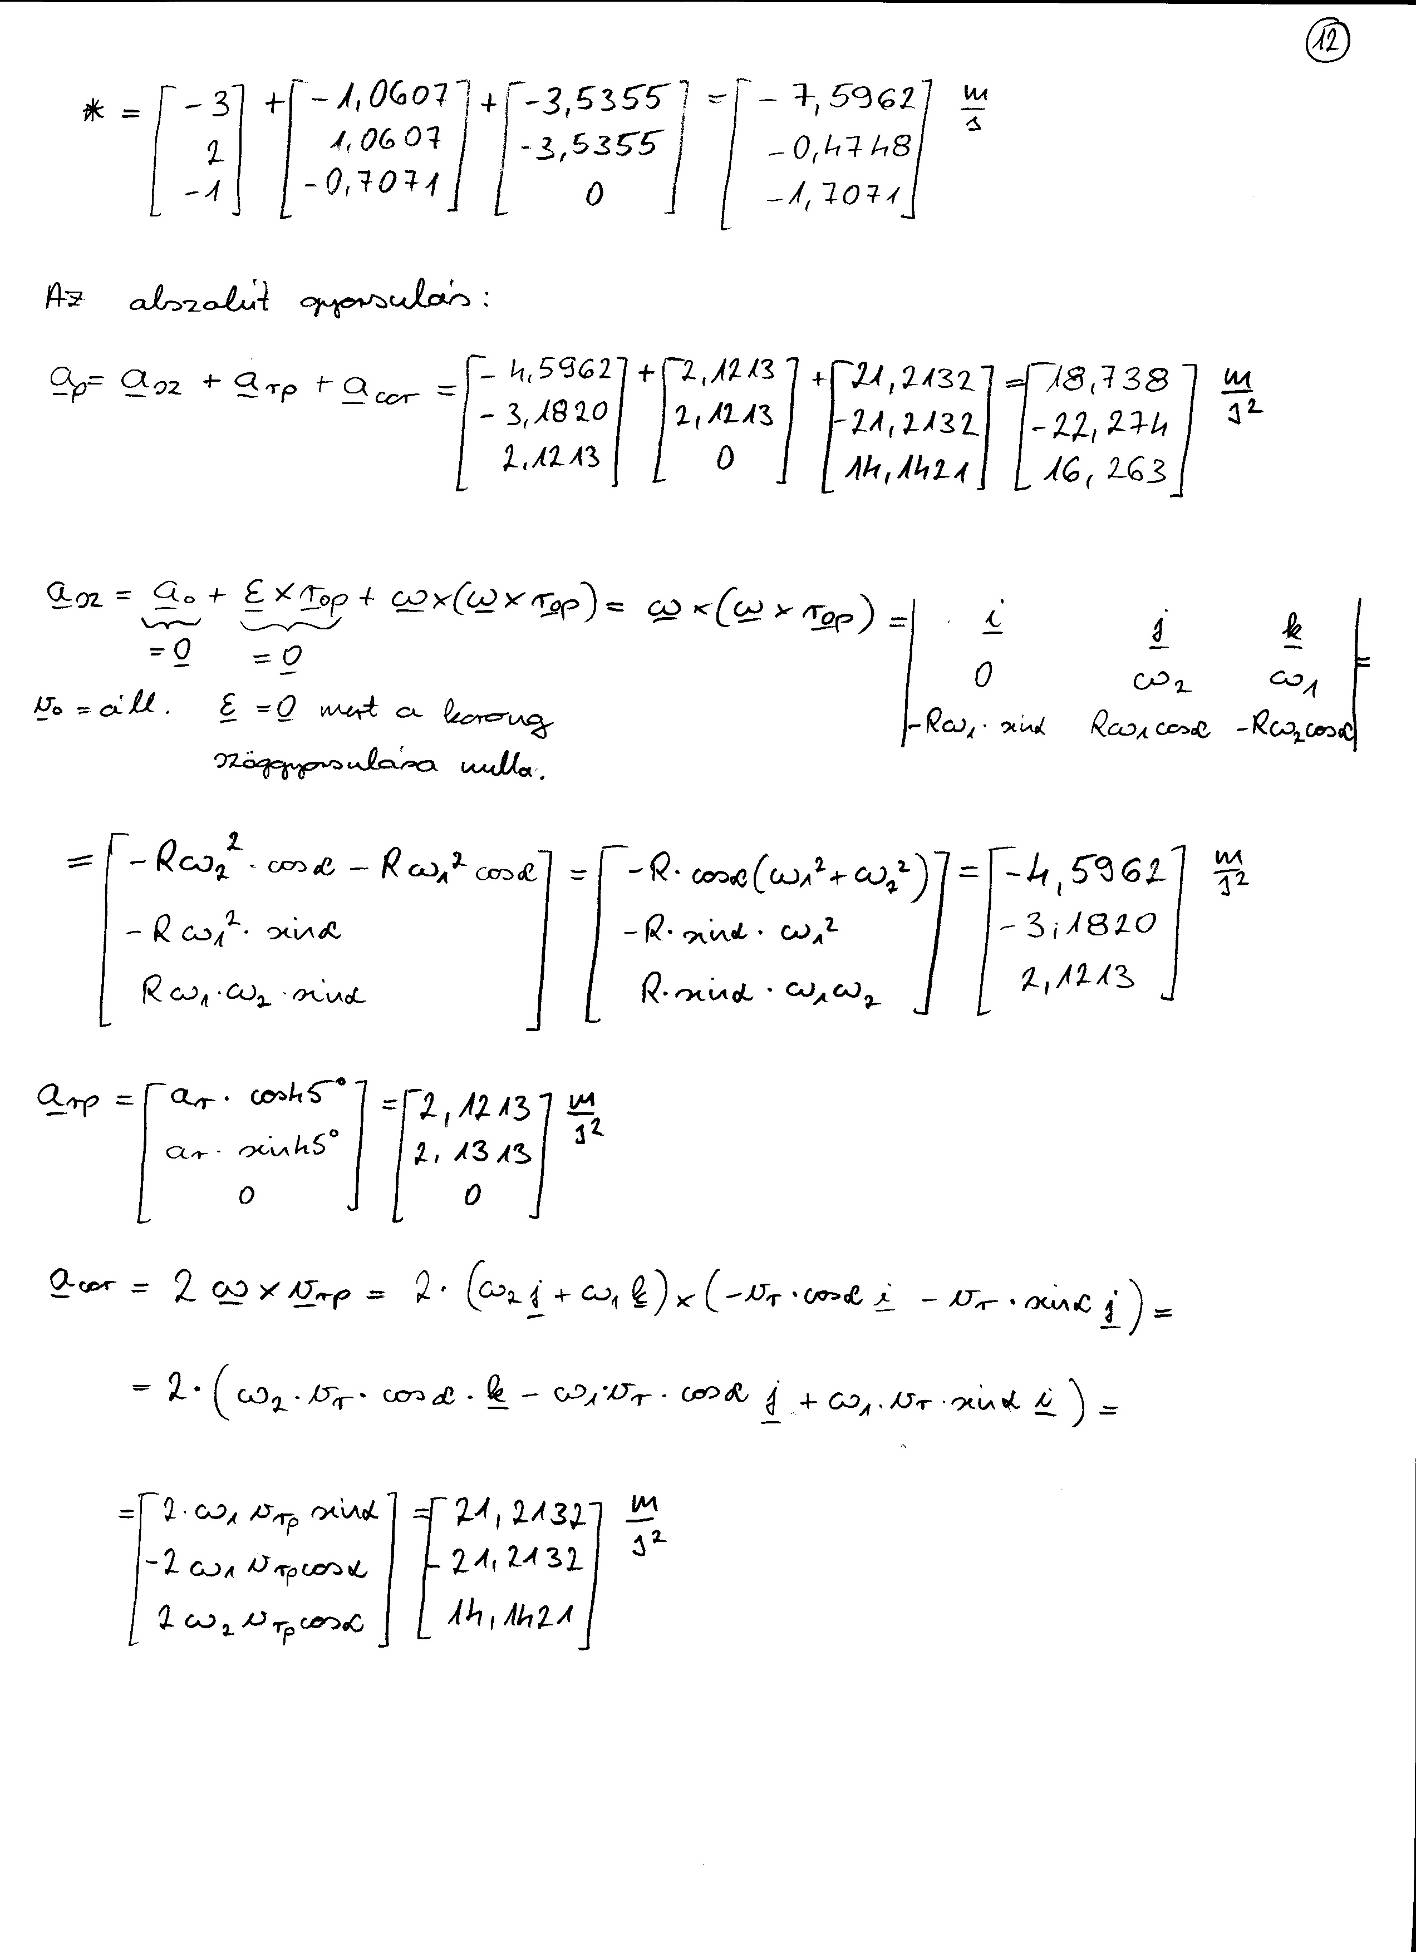 12
* = [-3; 2; -1] + [-1,0607; 1,0607; -0,7071] + [-3,5355; -3,5355; 0] = [-7,5962; -0,4748; -1,7071] m/s
Az abszolút gyorsulás:
a_p = a_sz + a_rp + a_cor = [-4,5962; -3,1820; 2,1213] + [2,1213; 2,1213; 0] + [21,2132; -21,2132; 14,1421] = [18,738; -22,274; 16,263] m/s²
a_sz = a_0 + ε × r_op + ω×(ω × r_op) = ω × (ω × r_op) = | i j k; 0 ω₂ ω₁; -Rω₁·sinα Rω₁cosα -Rω₂cosα | =
= 0 = 0
v_0 = áll. ε = 0 mert a korong
szöggyorsulása nulla.
= [-Rω₂²·cosα - Rω₁²cosα; -Rω₁²·sinα; Rω₁·ω₂·sinα] = [-R·cosα(ω₁²+ω₂²); -R·sinα·ω₁²; R·sinα·ω₁ω₂] = [-4,5962; -3,1820; 2,1213] m/s²
a_rp = [a_r·cos45°; a_r·sin45°; 0] = [2,1213; 2,1313; 0] m/s²
a_cor = 2 ω × v_rp = 2·(ω₂ j + ω₁ k) × (-v_r·cosα i - v_r·sinα j) =
= 2·(ω₂·v_r·cosα·k - ω₁·v_r·cosα j + ω₁·v_r·sinα i) =
= [2·ω₁ v_rp sinα; -2 ω₁ v_rp cosα; 2 ω₂ v_rp cosα] = [21,2132; -21,2132; 14,1421] m/s²